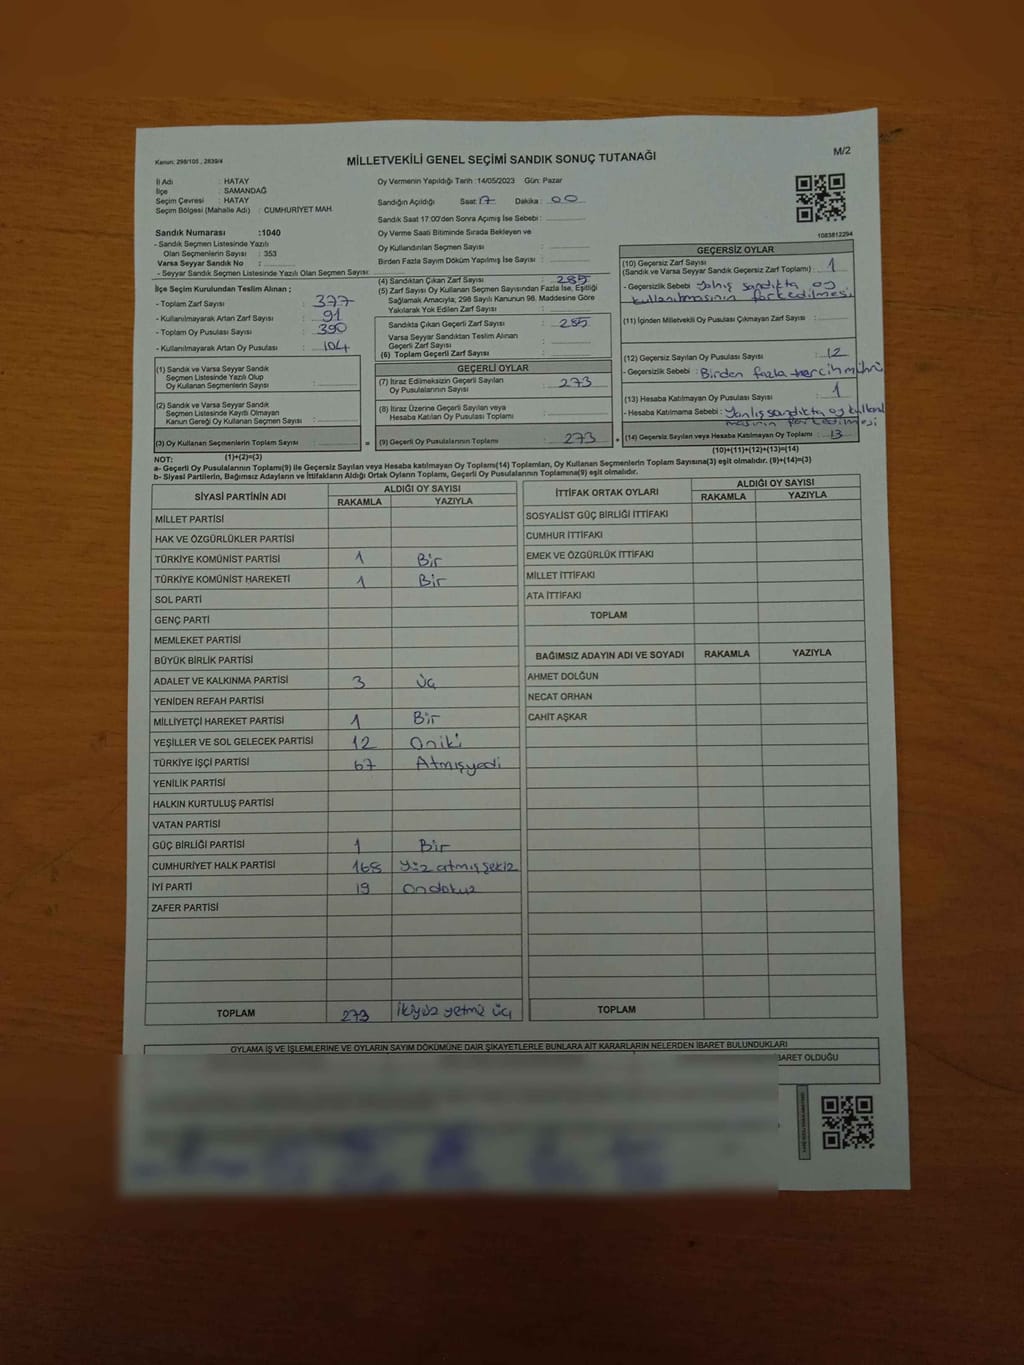 Kanun: 298/105 , 2839/4
MİLLETVEKİLİ GENEL SEÇİMİ SANDIK SONUÇ TUTANAĞI
M/2
İl Adı : HATAY
İlçe : SAMANDAĞ
Seçim Çevresi : HATAY
Seçim Bölgesi (Mahalle Adı) : CUMHURİYET MAH.
Sandık Numarası :1040
- Sandık Seçmen Listesinde Yazılı
Olan Seçmenlerin Sayısı : 353
Varsa Seyyar Sandık No :
- Seyyar Sandık Seçmen Listesinde Yazılı Olan Seçmen Sayısı:
İlçe Seçim Kurulundan Teslim Alınan ;
- Toplam Zarf Sayısı : 377
- Kullanılmayarak Artan Zarf Sayısı : 91
- Toplam Oy Pusulası Sayısı : 390
- Kullanılmayarak Artan Oy Pusulası : 104
(1) Sandık ve Varsa Seyyar Sandık
Seçmen Listesinde Yazılı Olup
Oy Kullanan Seçmenlerin Sayısı :
(2) Sandık ve Varsa Seyyar Sandık
Seçmen Listesinde Kayıtlı Olmayan
Kanun Gereği Oy Kullanan Seçmen Sayısı :
(3) Oy Kullanan Seçmenlerin Toplam Sayısı :
(1)+(2)=(3)
Oy Vermenin Yapıldığı Tarih :14/05/2023 Gün: Pazar
Sandığın Açıldığı Saat: 17 Dakika : 00
Sandık Saat 17:00'den Sonra Açımış İse Sebebi :
Oy Verme Saati Bitiminde Sırada Bekleyen ve
Oy Kullandırılan Seçmen Sayısı :
Birden Fazla Sayım Döküm Yapılmış İse Sayısı :
(4) Sandıktan Çıkan Zarf Sayısı : 285
(5) Zarf Sayısı Oy Kullanan Seçmen Sayısından Fazla İse, Eşitliği
Sağlamak Amacıyla; 298 Sayılı Kanunun 98. Maddesine Göre
Yakılarak Yok Edilen Zarf Sayısı :
Sandıkta Çıkan Geçerli Zarf Sayısı : 285
Varsa Seyyar Sandıktan Teslim Alınan
Geçerli Zarf Sayısı :
(6) Toplam Geçerli Zarf Sayısı :
GEÇERLİ OYLAR
(7) İtiraz Edilmeksizin Geçerli Sayılan
Oy Pusulalarının Sayısı : 273
(8) İtiraz Üzerine Geçerli Sayılan veya
Hesaba Katılan Oy Pusulası Toplamı :
= (9) Geçerli Oy Pusulalarının Toplamı : 273 +
1083812294
GEÇERSİZ OYLAR
(10) Geçersiz Zarf Sayısı
(Sandık ve Varsa Seyyar Sandık Geçersiz Zarf Toplamı) : 1
- Geçersizlik Sebebi : Yalnış sandıkta oy
kullanılmasının farkedilmesi
(11) İçinden Milletvekili Oy Pusulası Çıkmayan Zarf Sayısı :
(12) Geçersiz Sayılan Oy Pusulası Sayısı : 12
- Geçersizlik Sebebi : Birden fazla tercih mührü
(13) Hesaba Katılmayan Oy Pusulası Sayısı : 1
- Hesaba Katılmama Sebebi : Yanlış sandıkta oy kullanıl
masının farkedilmesi
(14) Geçersiz Sayılan veya Hesaba Katılmayan Oy Toplamı : 13
(10)+(11)+(12)+(13)=(14)
NOT:
a- Geçerli Oy Pusulalarının Toplamı(9) ile Geçersiz Sayılan veya Hesaba katılmayan Oy Toplamı(14) Toplamları, Oy Kullanan Seçmenlerin Toplam Sayısına(3) eşit olmalıdır. (9)+(14)=(3)
b- Siyasi Partilerin, Bağımsız Adayların ve İttifakların Aldığı Ortak Oyların Toplamı, Geçerli Oy Pusulalarının Toplamına(9) eşit olmalıdır.
SİYASİ PARTİNİN ADI ALDIĞI OY SAYISI
RAKAMLA YAZIYLA
MİLLET PARTİSİ
HAK VE ÖZGÜRLÜKLER PARTİSİ
TÜRKİYE KOMÜNİST PARTİSİ 1 Bir
TÜRKİYE KOMÜNİST HAREKETİ 1 Bir
SOL PARTİ
GENÇ PARTİ
MEMLEKET PARTİSİ
BÜYÜK BİRLİK PARTİSİ
ADALET VE KALKINMA PARTİSİ 3 Üç
YENİDEN REFAH PARTİSİ
MİLLİYETÇİ HAREKET PARTİSİ 1 Bir
YEŞİLLER VE SOL GELECEK PARTİSİ 12 Oniki
TÜRKİYE İŞÇİ PARTİSİ 67 Atmışyedi
YENİLİK PARTİSİ
HALKIN KURTULUŞ PARTİSİ
VATAN PARTİSİ
GÜÇ BİRLİĞİ PARTİSİ 1 Bir
CUMHURİYET HALK PARTİSİ 168 Yüz atmış sekiz
İYİ PARTİ 19 Ondokuz
ZAFER PARTİSİ
TOPLAM 273 İkiyüz yetmiş üç
İTTİFAK ORTAK OYLARI ALDIĞI OY SAYISI
RAKAMLA YAZIYLA
SOSYALİST GÜÇ BİRLİĞİ İTTİFAKI
CUMHUR İTTİFAKI
EMEK VE ÖZGÜRLÜK İTTİFAKI
MİLLET İTTİFAKI
ATA İTTİFAKI
TOPLAM
BAĞIMSIZ ADAYIN ADI VE SOYADI RAKAMLA YAZIYLA
AHMET DOLĞUN
NECAT ORHAN
CAHİT AŞKAR
TOPLAM
OYLAMA İŞ VE İŞLEMLERİNE VE OYLARIN SAYIM DÖKÜMÜNE DAİR ŞİKAYETLERLE BUNLARA AİT KARARLARIN NELERDEN İBARET BULUNDUKLARI
BARET OLDUĞU